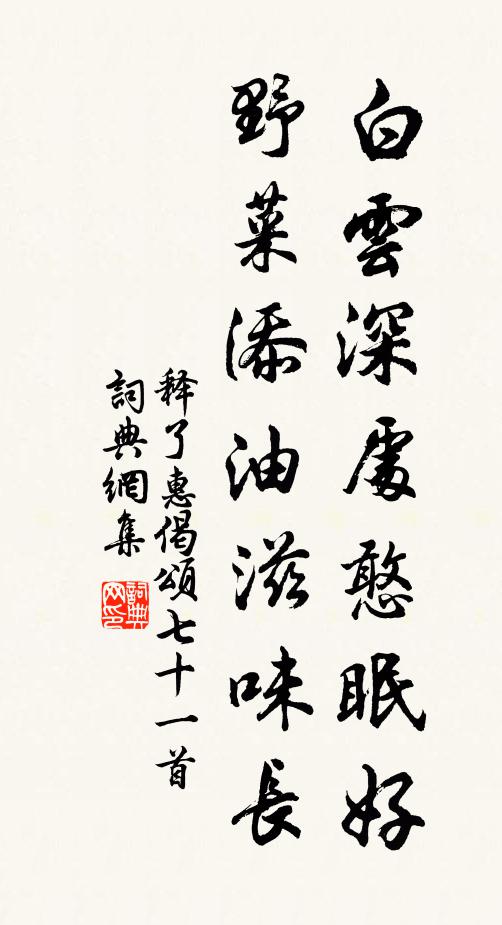 白雲深處憨眠好
野菜添油滋味長
释了惠偈頌七十一首
詞典網集
詞典网印